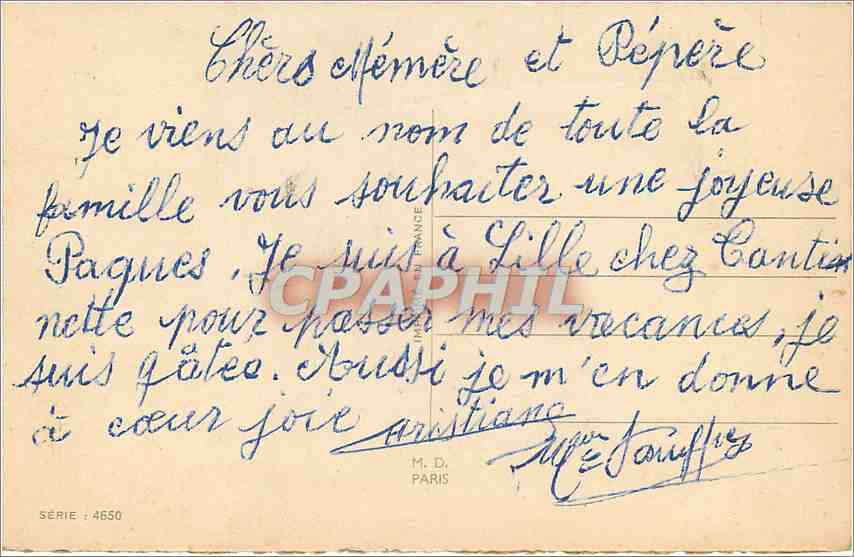 Chèrs Mémère et Pépère
Je viens au nom de toute la
famille vous souhaiter une joyeuse
Paques. Je suis à Lille chez Tantin
nette pour passer mes vacances, je
suis gâtée. Aussi je m'en donne
à cœur joie
Christiane
IMPRIMÉ EN FRANCE
CPAPHIL
M. D.
PARIS
SÉRIE : 4650